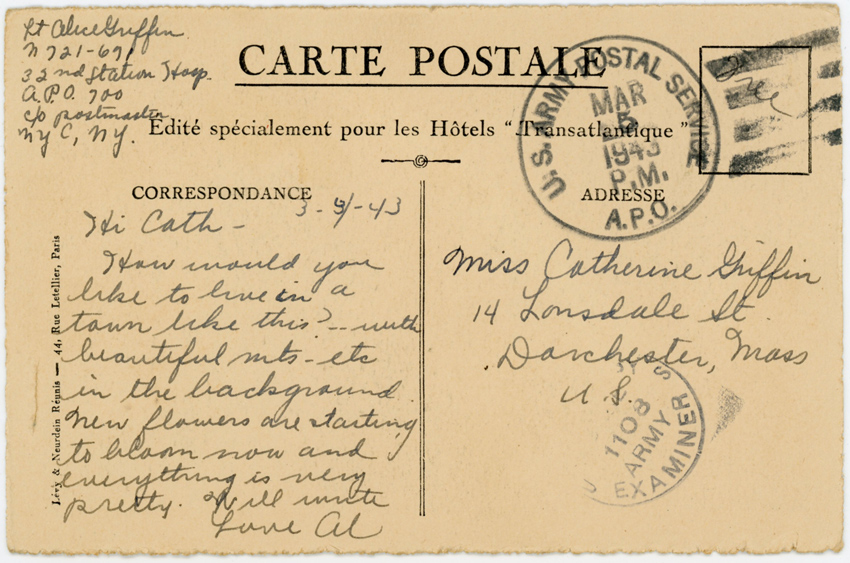 Lt Alice Griffin
N 721-691
32nd Station Hosp.
A.P.O. 700
c/o postmaster
NYC, NY.
CARTE POSTALE
Edité spécialement pour les Hôtels " Transatlantique "
U.S. ARMY POSTAL SERVICE
MAR
5
1943
P.M.
A.P.O.
Free
CORRESPONDANCE
3-4-43
Hi Cath -
How would you
like to live in a
town like this? -- with
beautiful mts - etc
in the background.
New flowers are starting
to bloom now and
everything is very
pretty. Will write
Love Al
Lévy & Neurdein Réunis — 44, Rue Letellier, Paris
ADRESSE
Miss Catherine Griffin
14 Lonsdale St.
Dorchester, Mass
U.S.
1108
ARMY
EXAMINER